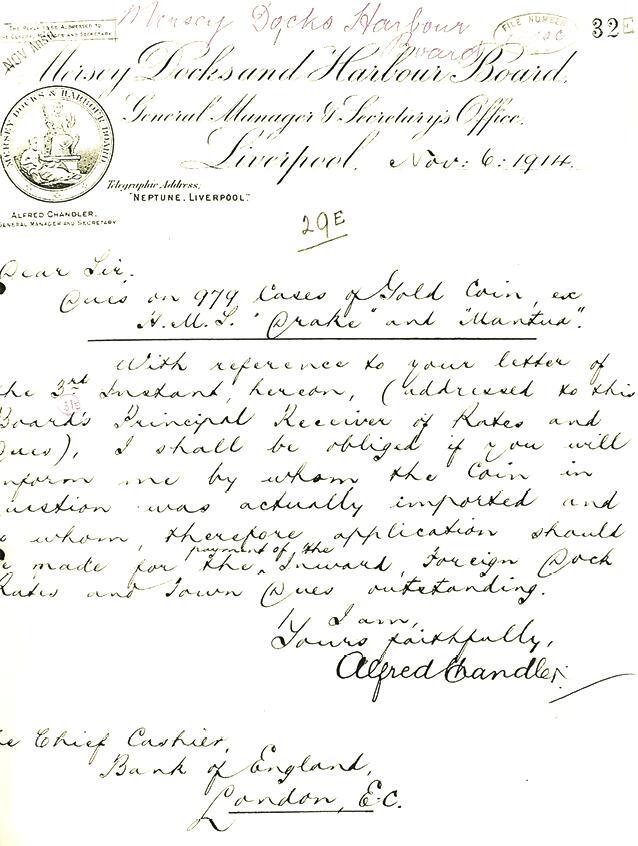 Mersey Docks Harbour
Board
FILE NUMBER
32E
THE REPLY TO BE ADDRESSED TO
THE GENERAL MANAGER AND SECRETARY
NOV
Mersey Docks and Harbour Board.
General Manager & Secretary's Office.
Liverpool, Nov: 6: 1914.
MERSEY DOCKS & HARBOUR BOARD
Telegraphic Address,
"NEPTUNE, LIVERPOOL".
ALFRED CHANDLER.
GENERAL MANAGER AND SECRETARY
29E
Dear Sir.
Dues on 979 Cases of Gold Coin, ex
H.M.S. "Drake" and "Mantua".
With reference to your letter of
the 3rd Instant, hereon, (addressed to this
31E
Board's Principal Receiver of Rates and
Dues), I shall be obliged if you will
inform me by whom the Coin in
question was actually imported and
to whom, therefore application should
be made for the payment of the Inward, Foreign Dock
Rates and Town Dues outstanding.
I am,
Yours faithfully,
Alfred Chandler.
The Chief Cashier,
Bank of England,
London, E.C.